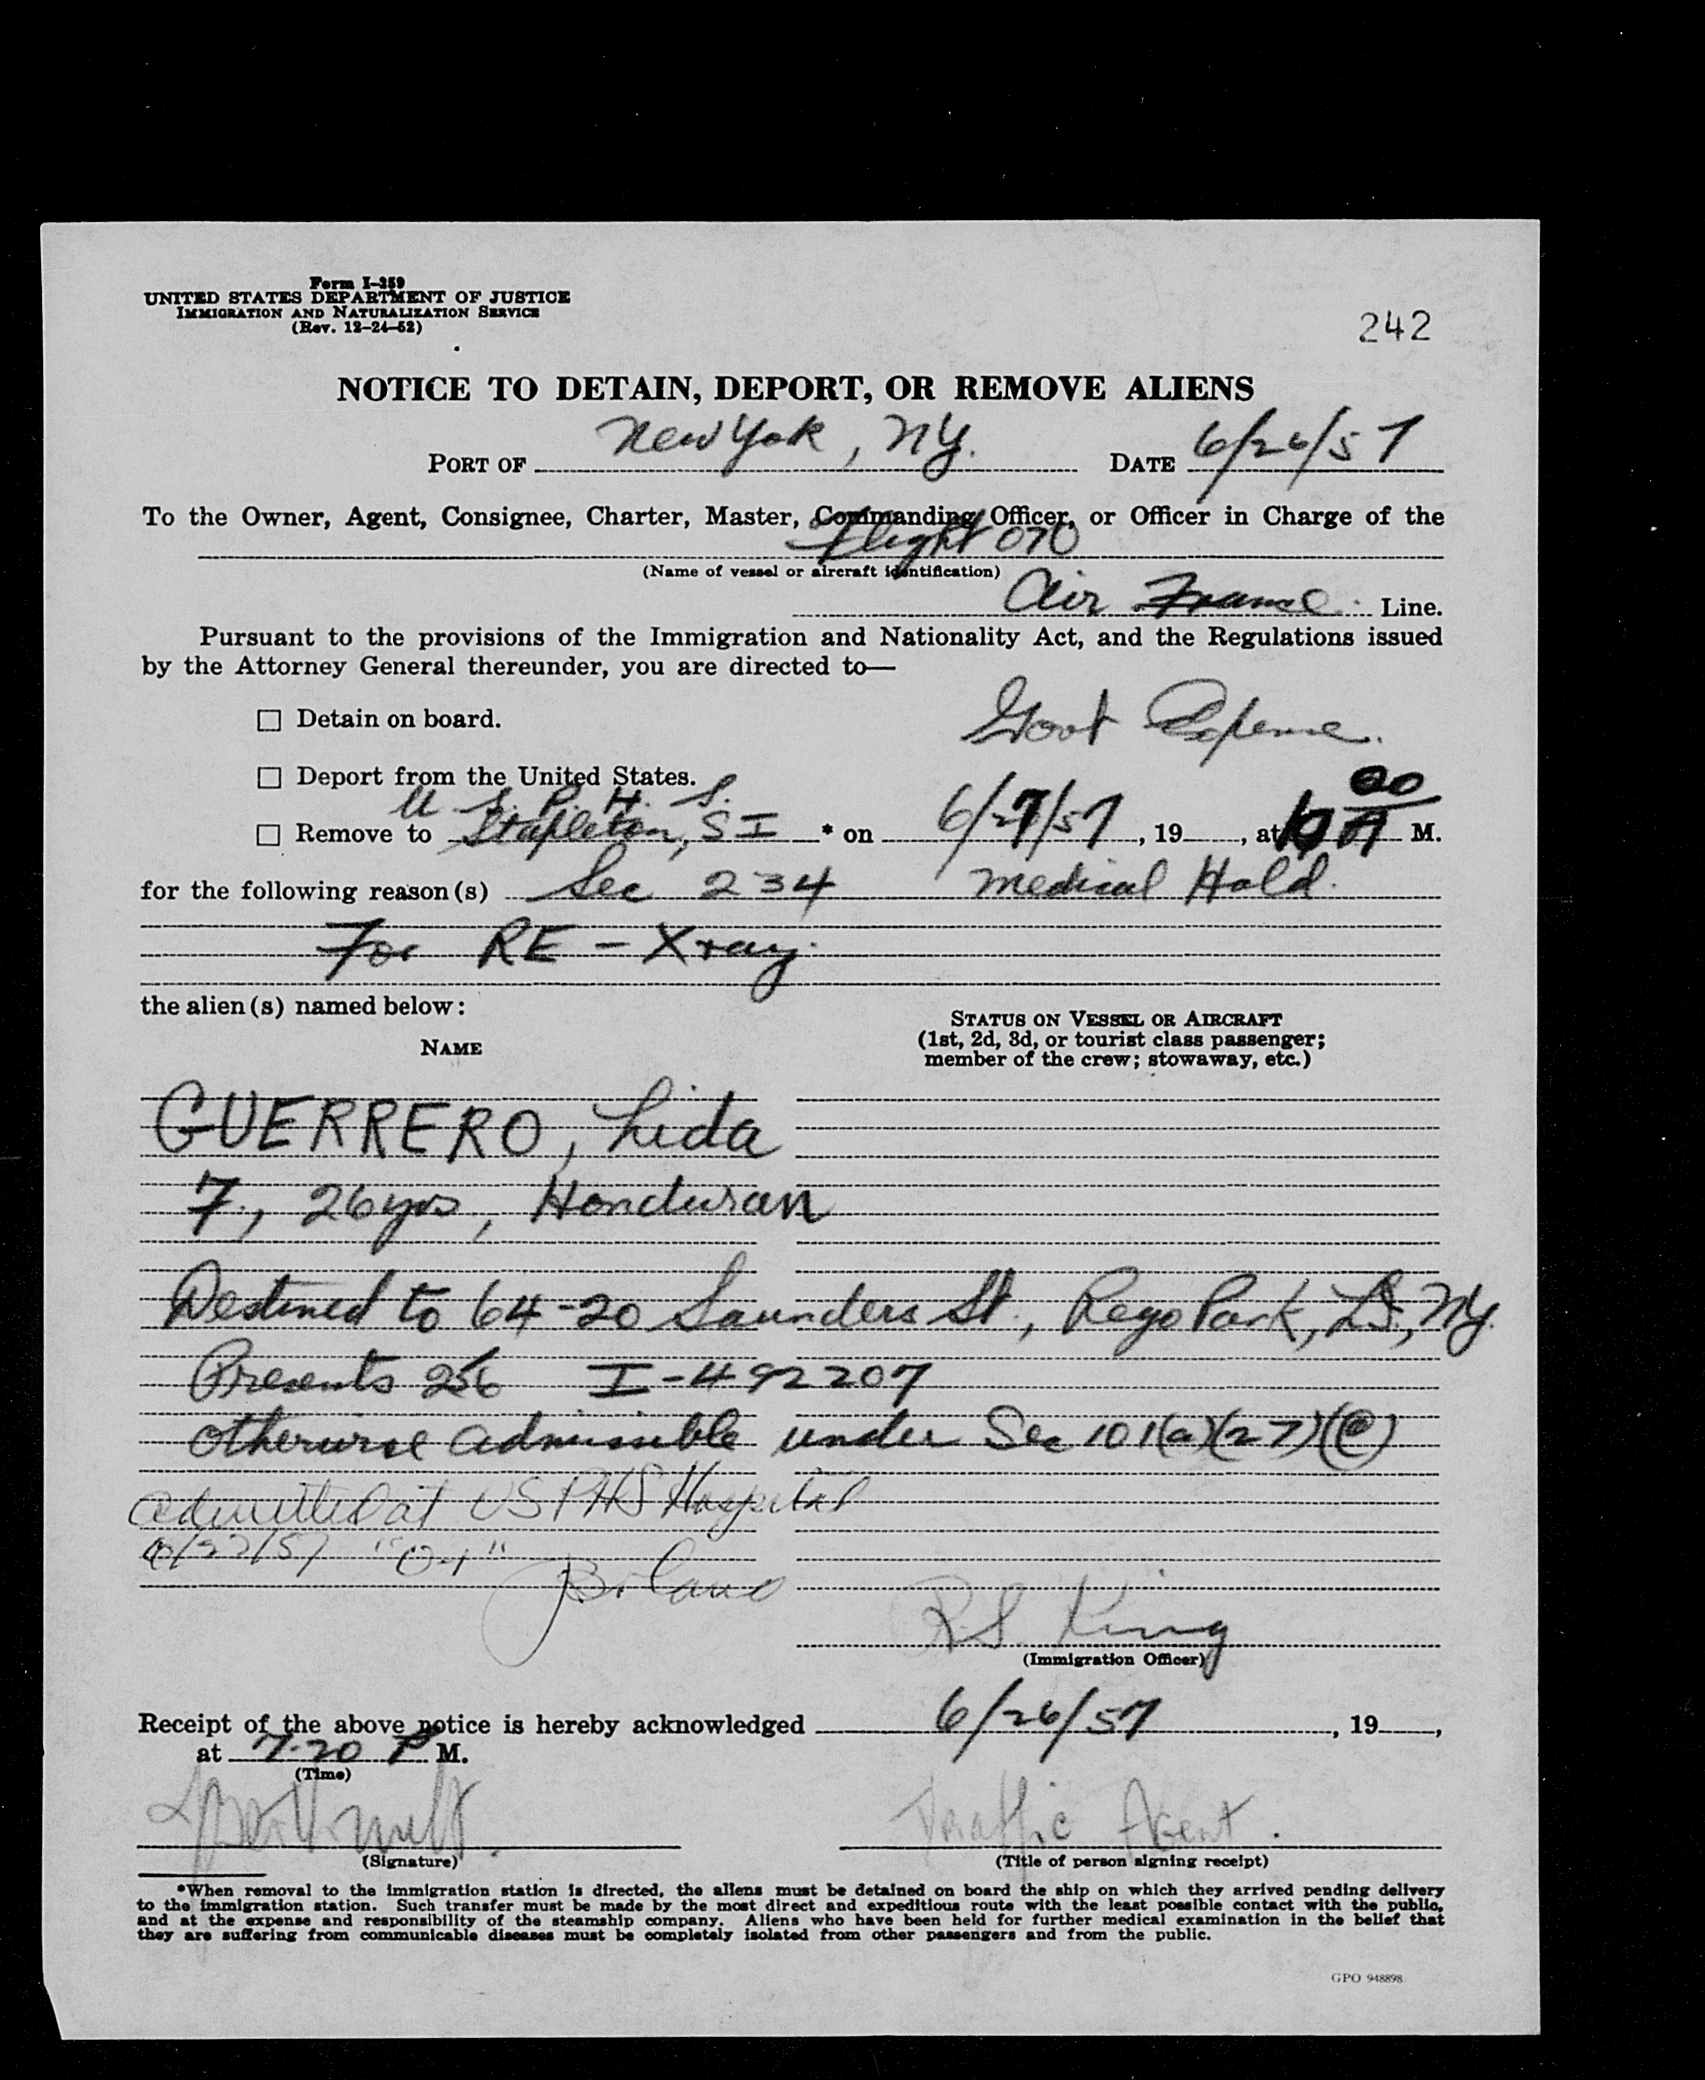 Form I-259
UNITED STATES DEPARTMENT OF JUSTICE
IMMIGRATION AND NATURALIZATION SERVICE
(Rev. 12-24-52)
242
NOTICE TO DETAIN, DEPORT, OR REMOVE ALIENS
PORT OF New York, NY. DATE 6/26/57
To the Owner, Agent, Consignee, Charter, Master, Commanding Officer, or Officer in Charge of the
Flight 070
(Name of vessel or aircraft identification)
Air France Line.
Pursuant to the provisions of the Immigration and Nationality Act, and the Regulations issued
by the Attorney General thereunder, you are directed to—
☐ Detain on board.
Govt Expense.
☐ Deport from the United States.
U. S. P. H. S.
☐ Remove to Stapleton, SI * on 6/27/57, 19, at 10 00 A M.
for the following reason(s) Sec 234 Medical Hold.
For RE-Xray.
the alien(s) named below:
NAME
STATUS ON VESSEL OR AIRCRAFT
(1st, 2d, 3d, or tourist class passenger;
member of the crew; stowaway, etc.)
GUERRERO, Lida
F., 26 yrs, Honduran
Destined to 64-20 Saunders St., Rego Park, L.I., NY.
Presents 256 I-492207
otherwise admissible under Sec 101(a)(27)(C)
admitted at USPHS Hospital
6/27/57
R.S. King
(Immigration Officer)
Receipt of the above notice is hereby acknowledged 6/26/57, 19,
at 7:20 P M.
(Time)
Traffic Agent.
(Signature)
(Title of person signing receipt)
*When removal to the immigration station is directed, the aliens must be detained on board the ship on which they arrived pending delivery
to the immigration station. Such transfer must be made by the most direct and expeditious route with the least possible contact with the public,
and at the expense and responsibility of the steamship company. Aliens who have been held for further medical examination in the belief that
they are suffering from communicable diseases must be completely isolated from other passengers and from the public.
GPO 948898